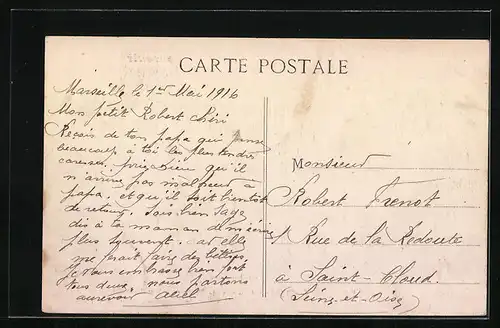 CARTE POSTALE
Marseille le 1er Mai 1916
Mon petit Robert chéri
Reçois de ton papa qui pense
beaucoup à toi les plus tendres
caresses, prie bien qu'il
n'arrive pas malheur à
papa, et qu'il soit bientôt
de retour, sois bien sage
dis à ta maman de m'écrire
plus souvent, car elle
me fait faire des
je vous embrasse bien fort
tous deux, nous partons
aurevoir
Monsieur
Robert Frenot
1 Rue de la Redoute
à Saint-Cloud
(Seine-et-Oise)